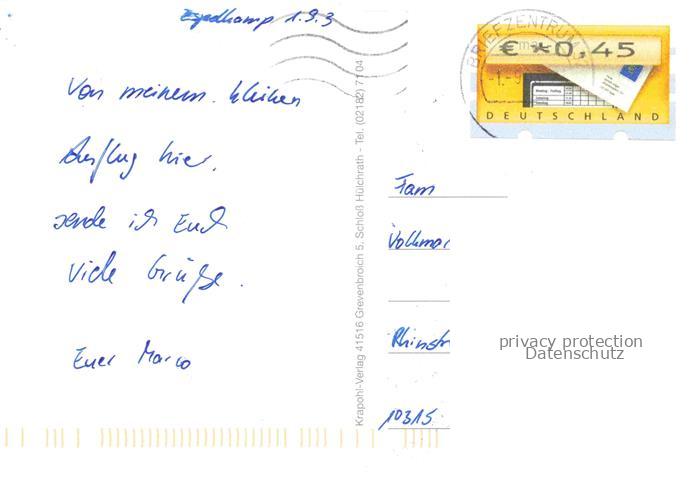 Espelkamp 1.9.3
Von meinem kleinen
Ausflug hier,
sende ich Euch
viele Grüße.
Euer Marco
Krapohl-Verlag 41516 Grevenbroich 5, Schloß Hülchrath - Tel. (02182) 71 04
BRIEFZENTRUM
-1.-9
€ *0,45
DEUTSCHLAND
Fam
Volkmar
Rhinstr
10315
privacy protection
Datenschutz